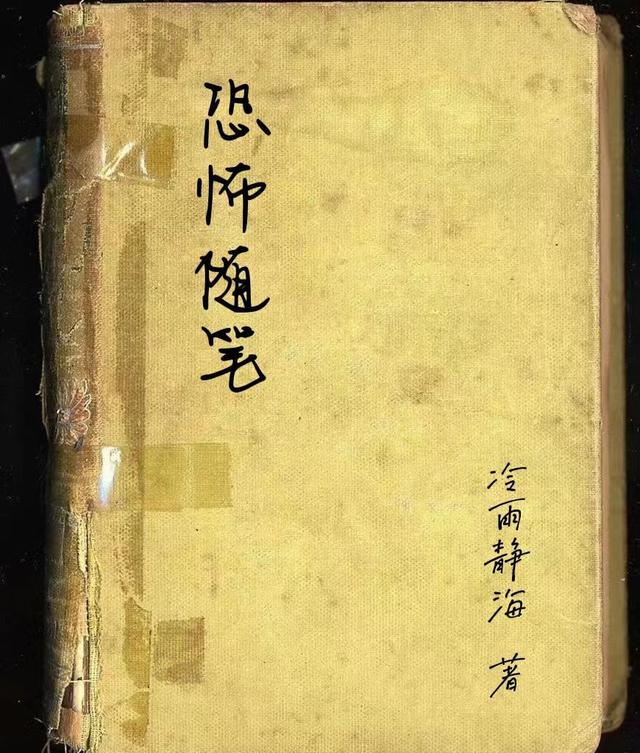 恐怖随笔
冷雨静海 著